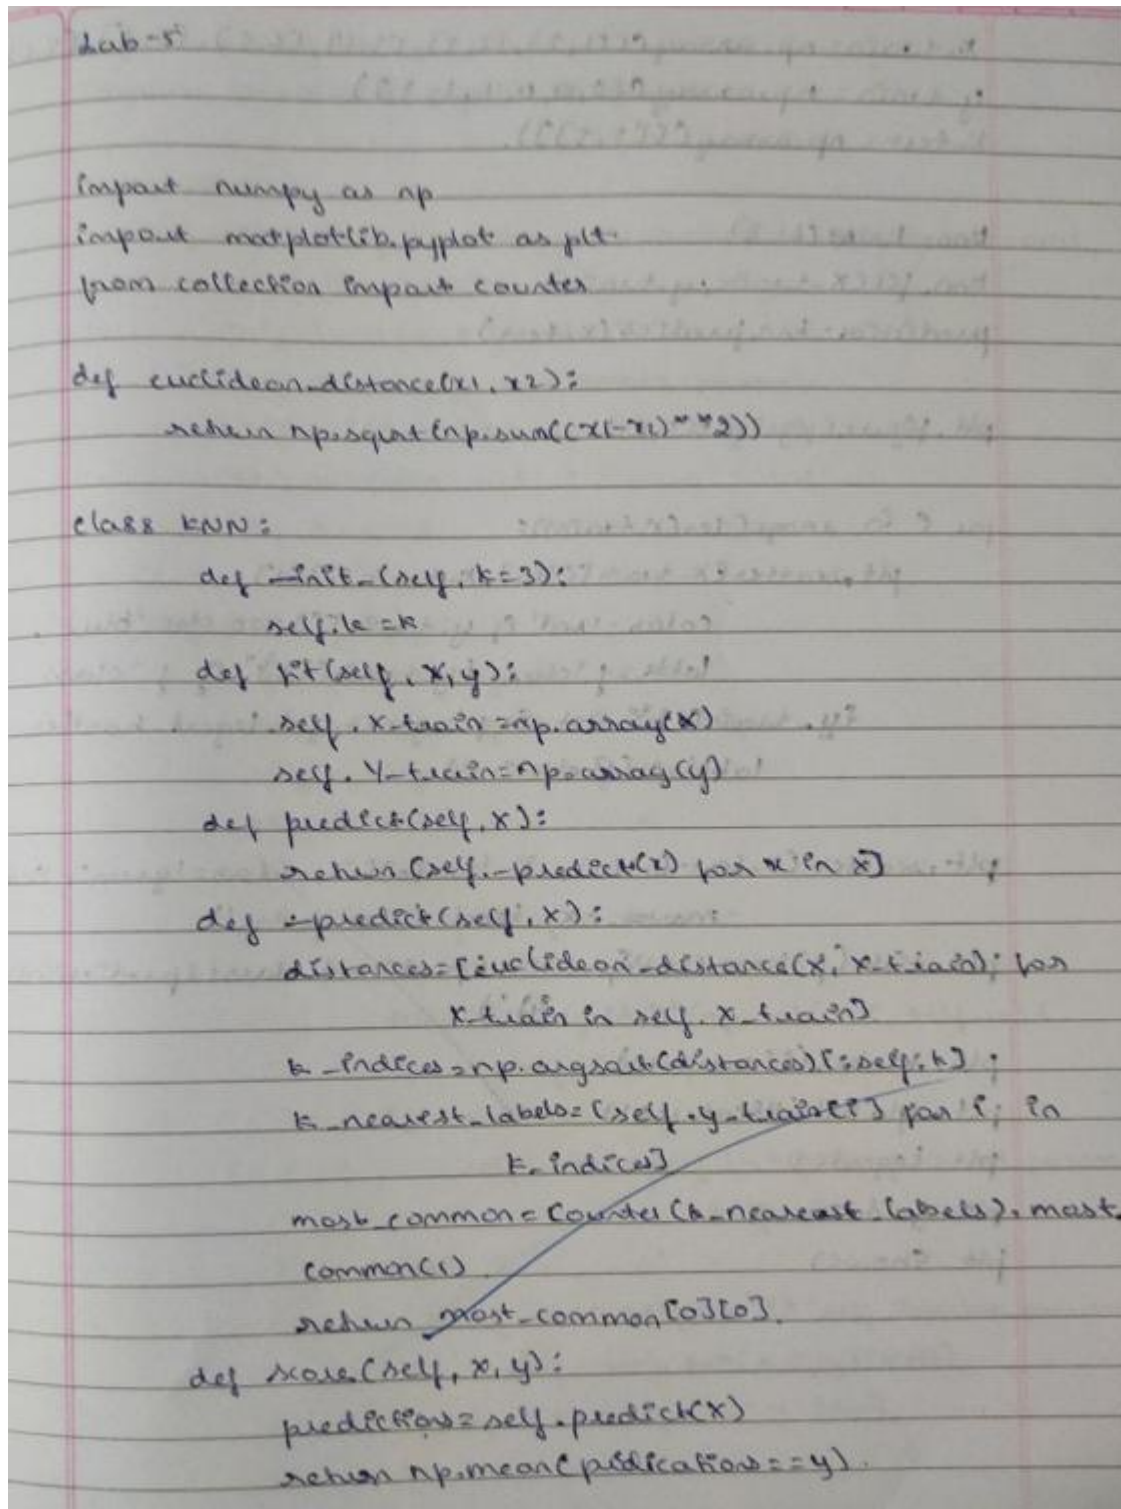 Lab-5
import numpy as np
import matplotlib.pyplot as plt
from collection import counter
def euclidean_distance(x1, x2):
return np.sqrt(np.sum((x1-x1)**2))
class KNN:
def _init_(self, k=3):
self.k=k
def fit(self, X, y):
self.X_train=np.array(X)
self.Y_train=np.array(y)
def predict(self, X):
return [self._predict(x) for x in X]
def _predict(self, x):
distances=[euclidean_distance(x, x_train) for
x_train in self.X_train]
k_indices=np.argsort(distances)[:self.k]
k_nearest_labels=[self.y_train[i] for i in
k_indices]
most_common=Counter(k_nearest_labels).most_
common(1)
return most_common[0][0].
def score(self, x, y):
predictions=self.predict(X)
return np.mean(pidications==y).